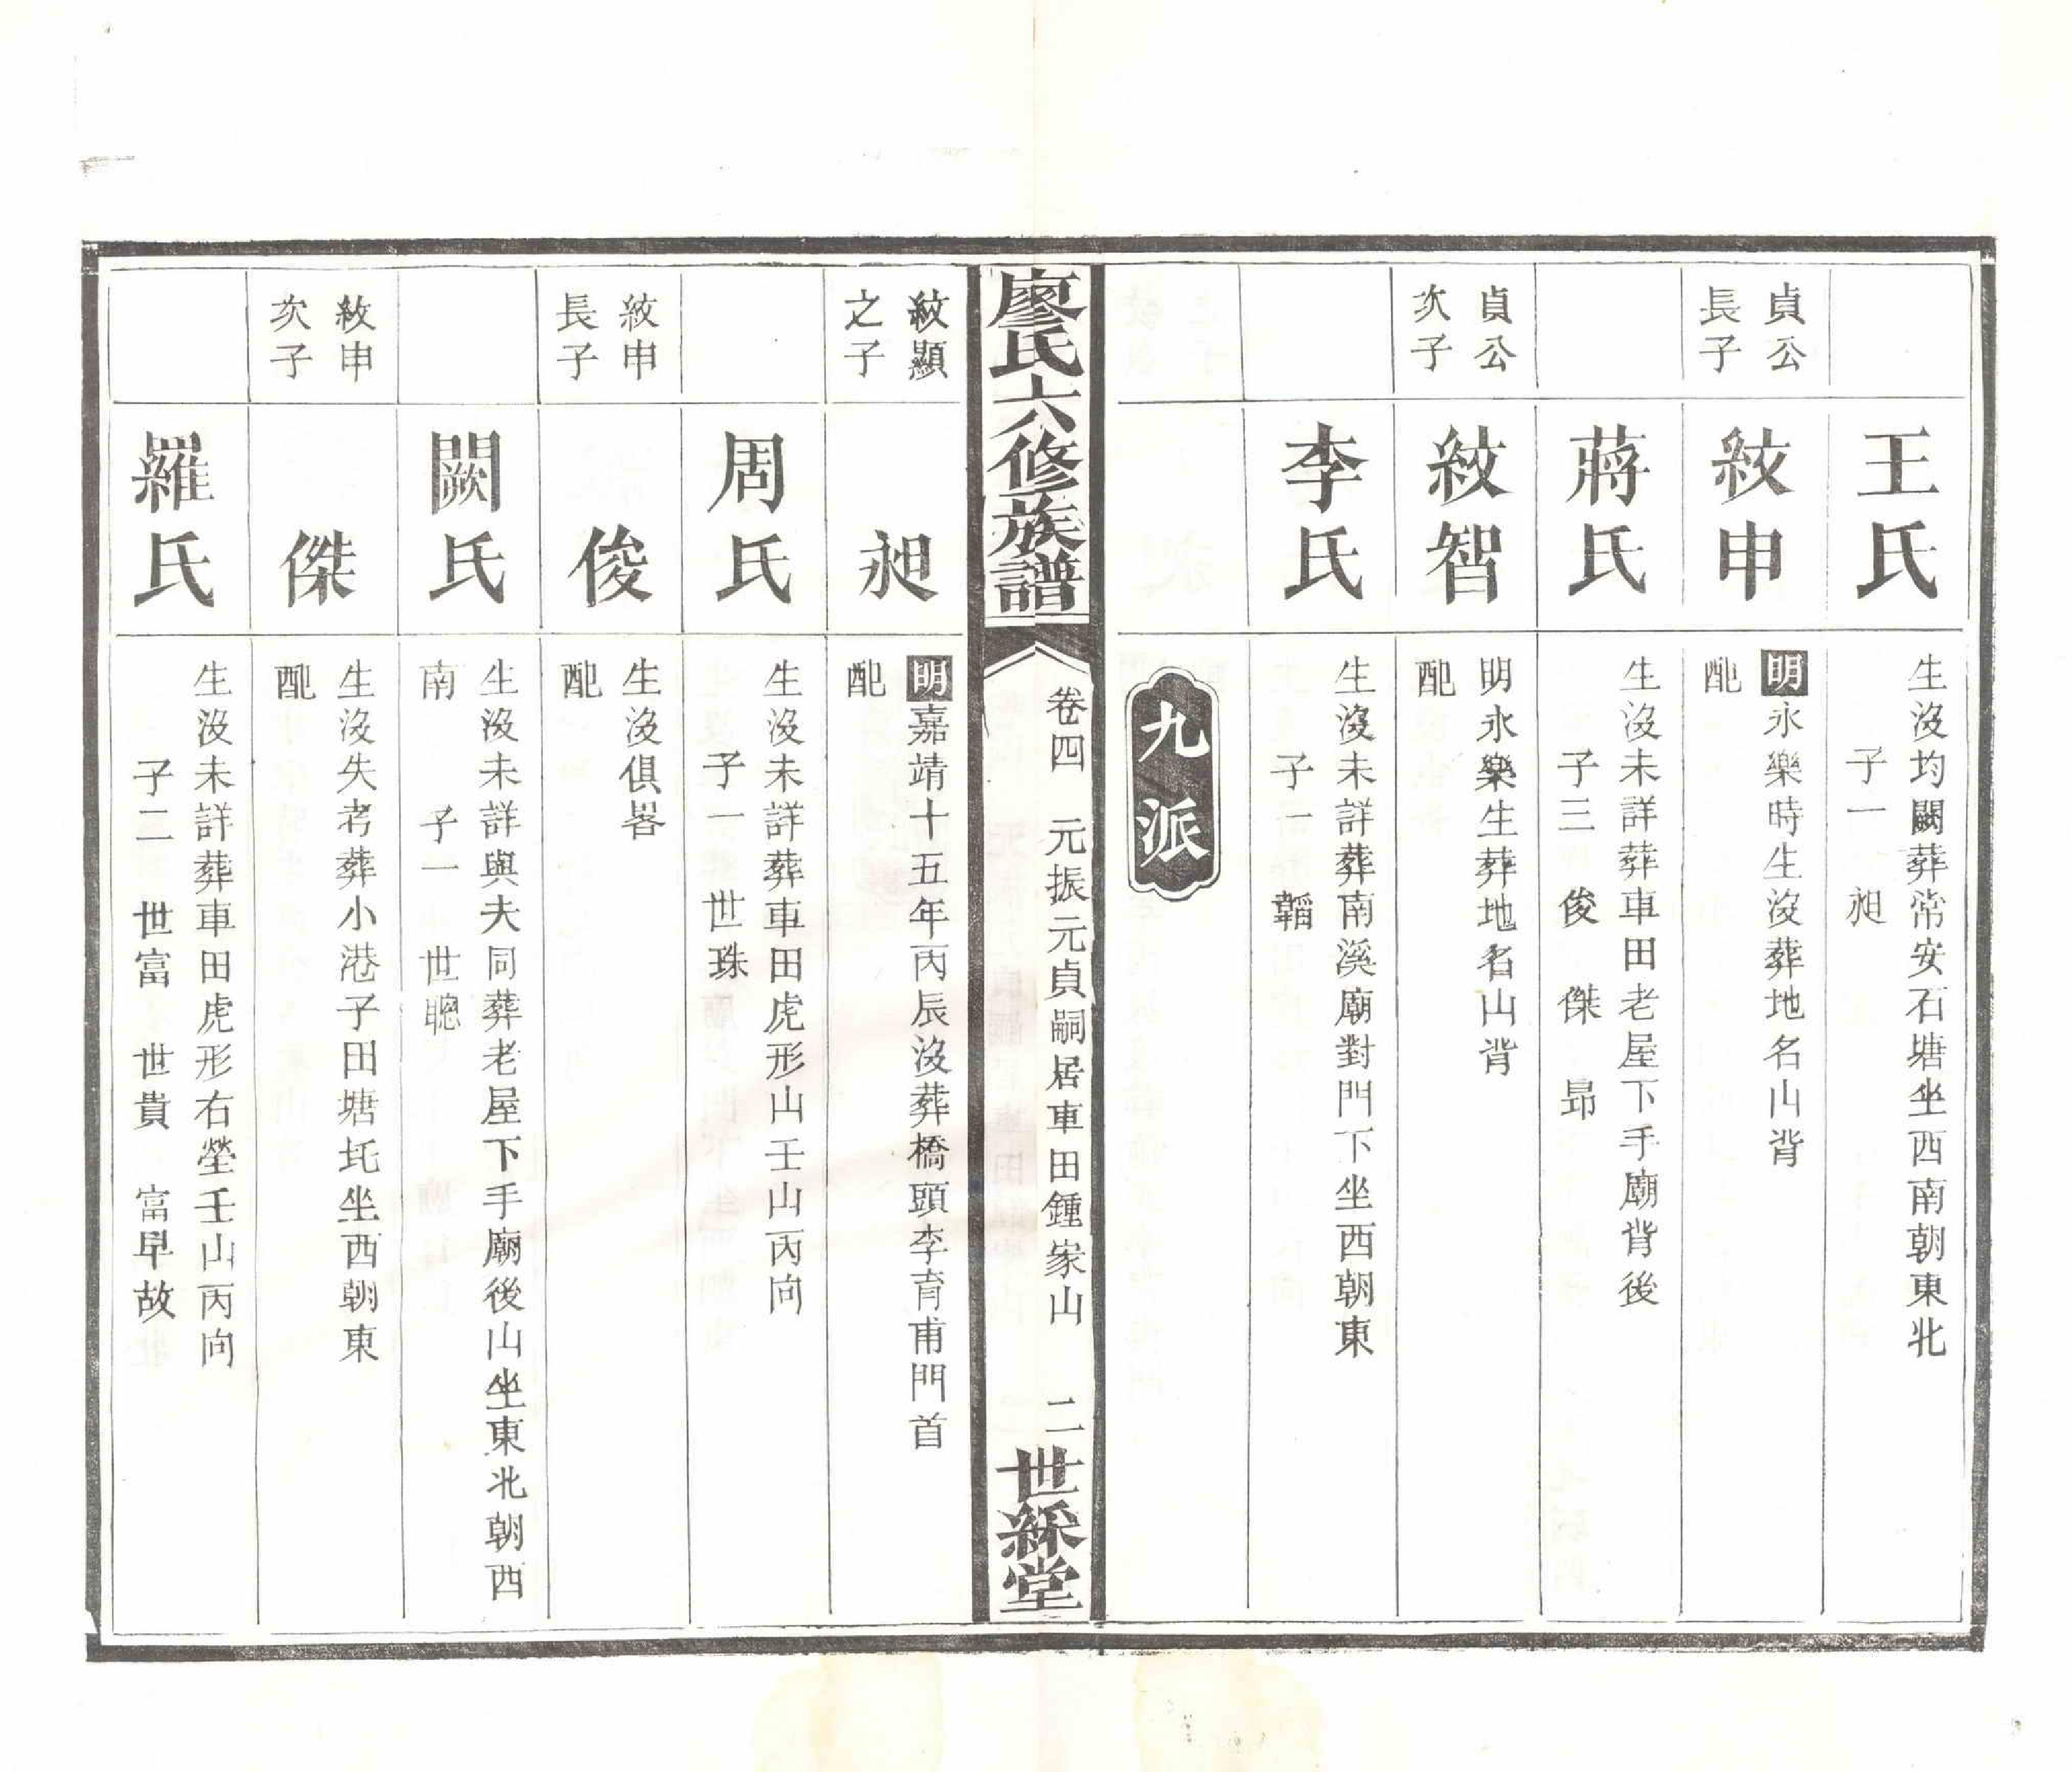 王氏
生沒均闕葬常安石塘坐西南朝東北
子一 昶
貞公
長子
紋申
明永樂時生沒葬地名山背
配
蔣氏
生沒未詳葬車田老屋下手廟背後
子三 俊 傑 昴
貞公
次子
紋智
明永樂生葬地名山背
配
李氏
生沒未詳葬南溪廟對門下坐西朝東
子一 韜
九派
廖氏六修族譜
卷四 元振元貞嗣居車田鍾家山 二
世綵堂
紋顯
之子
昶
明嘉靖十五年丙辰沒葬橋頭李育甫門首
配
周氏
生沒未詳葬車田虎形山壬山丙向
子一 世珠
紋申
長子
俊
生沒俱畧
配
闕氏
生沒未詳與夫同葬老屋下手廟後山坐東北朝西
南 子一 世聰
紋申
次子
傑
生沒失考葬小港子田塘坉坐西朝東
配
羅氏
生沒未詳葬車田虎形右塋壬山丙向
子二 世富 世貴 富早故